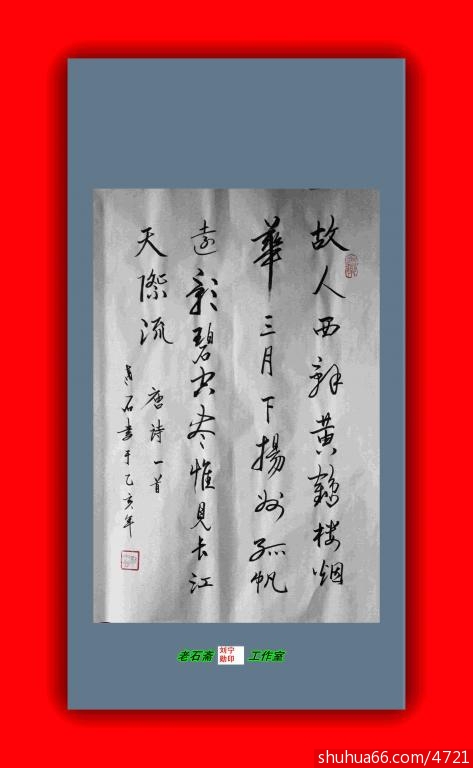 故人西辞黄鹤楼烟
華三月下揚州孤帆
遠影碧空尽惟見长江
天際流
唐詩一首
老石書于乙亥年
老石斋 刘宁勋印 工作室
shuhua66.com/4721